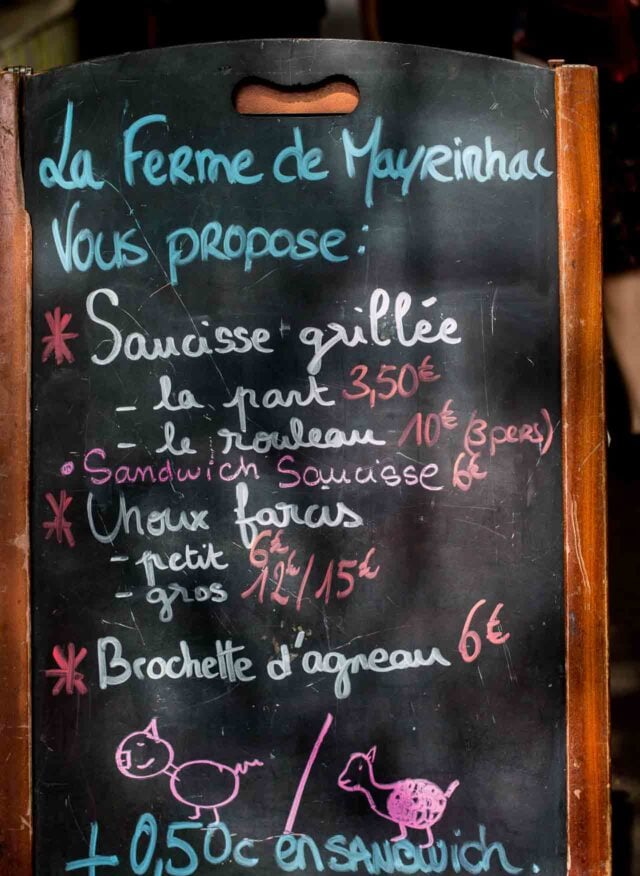 La Ferme de Mayrinhac
Vous propose :
* Saucisse grillée
- la part 3,50€
- le rouleau 10€ (3 pers)
• Sandwich Saucisse 6€
* Choux farcis
- petit 6€
- gros 12€/15€
* Brochette d'agneau 6€
/
+ 0,50c en sandwich.